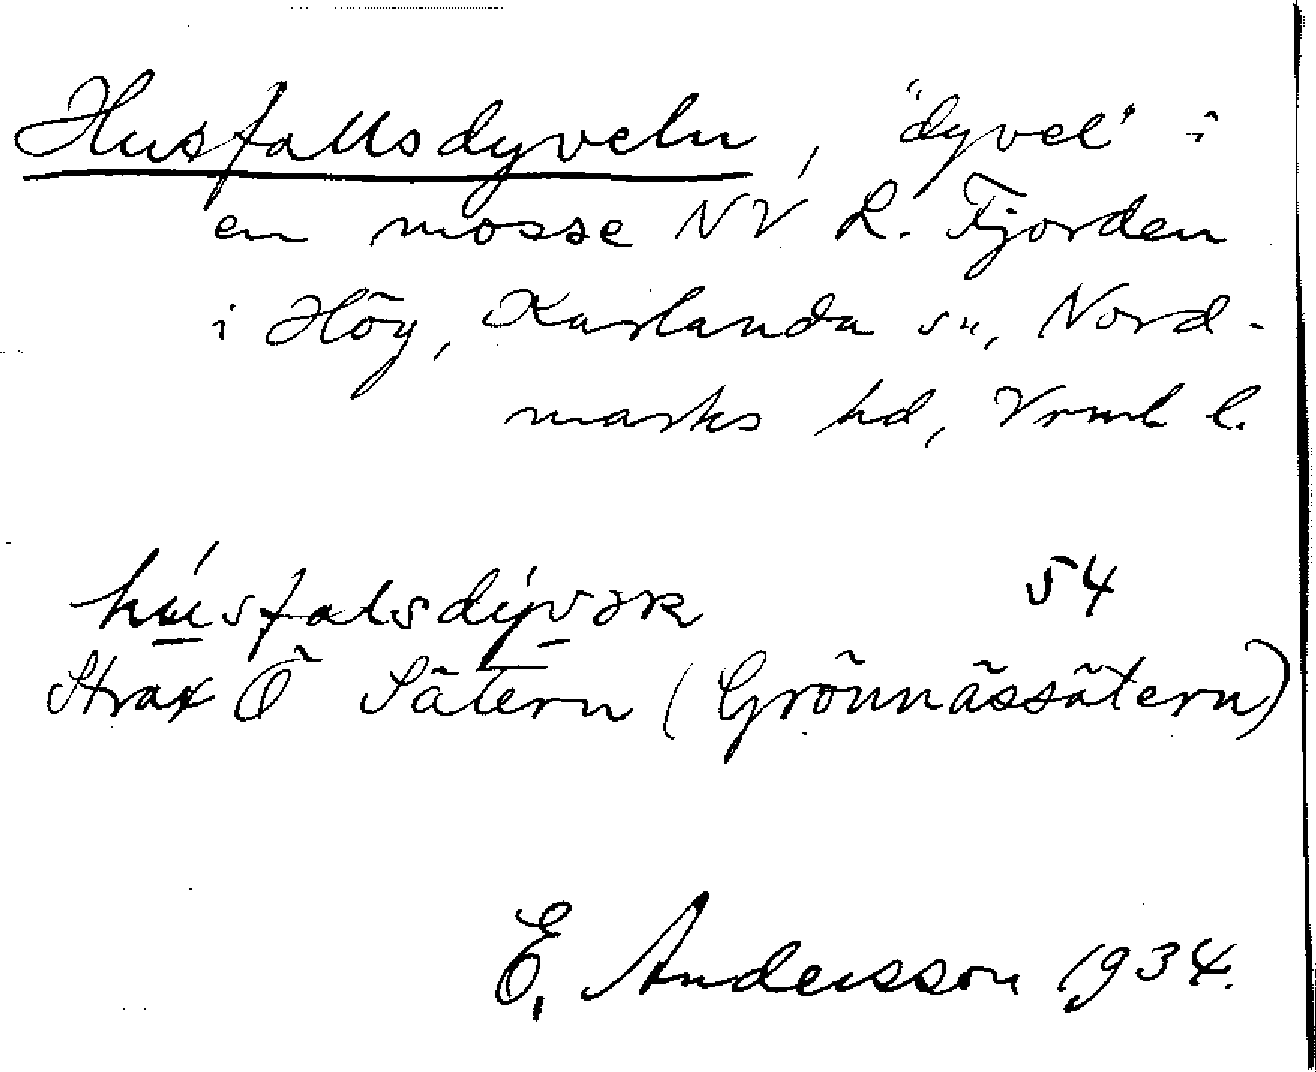 Husfallsdyveln, "dyvel" i
en mosse NV L. Fjorden
i Hög, Karlanda sn, Nord-
marks hd, Vrml l.
54
Strax Ö Sätern (Grönnässätern)
E. Andersson 1934.